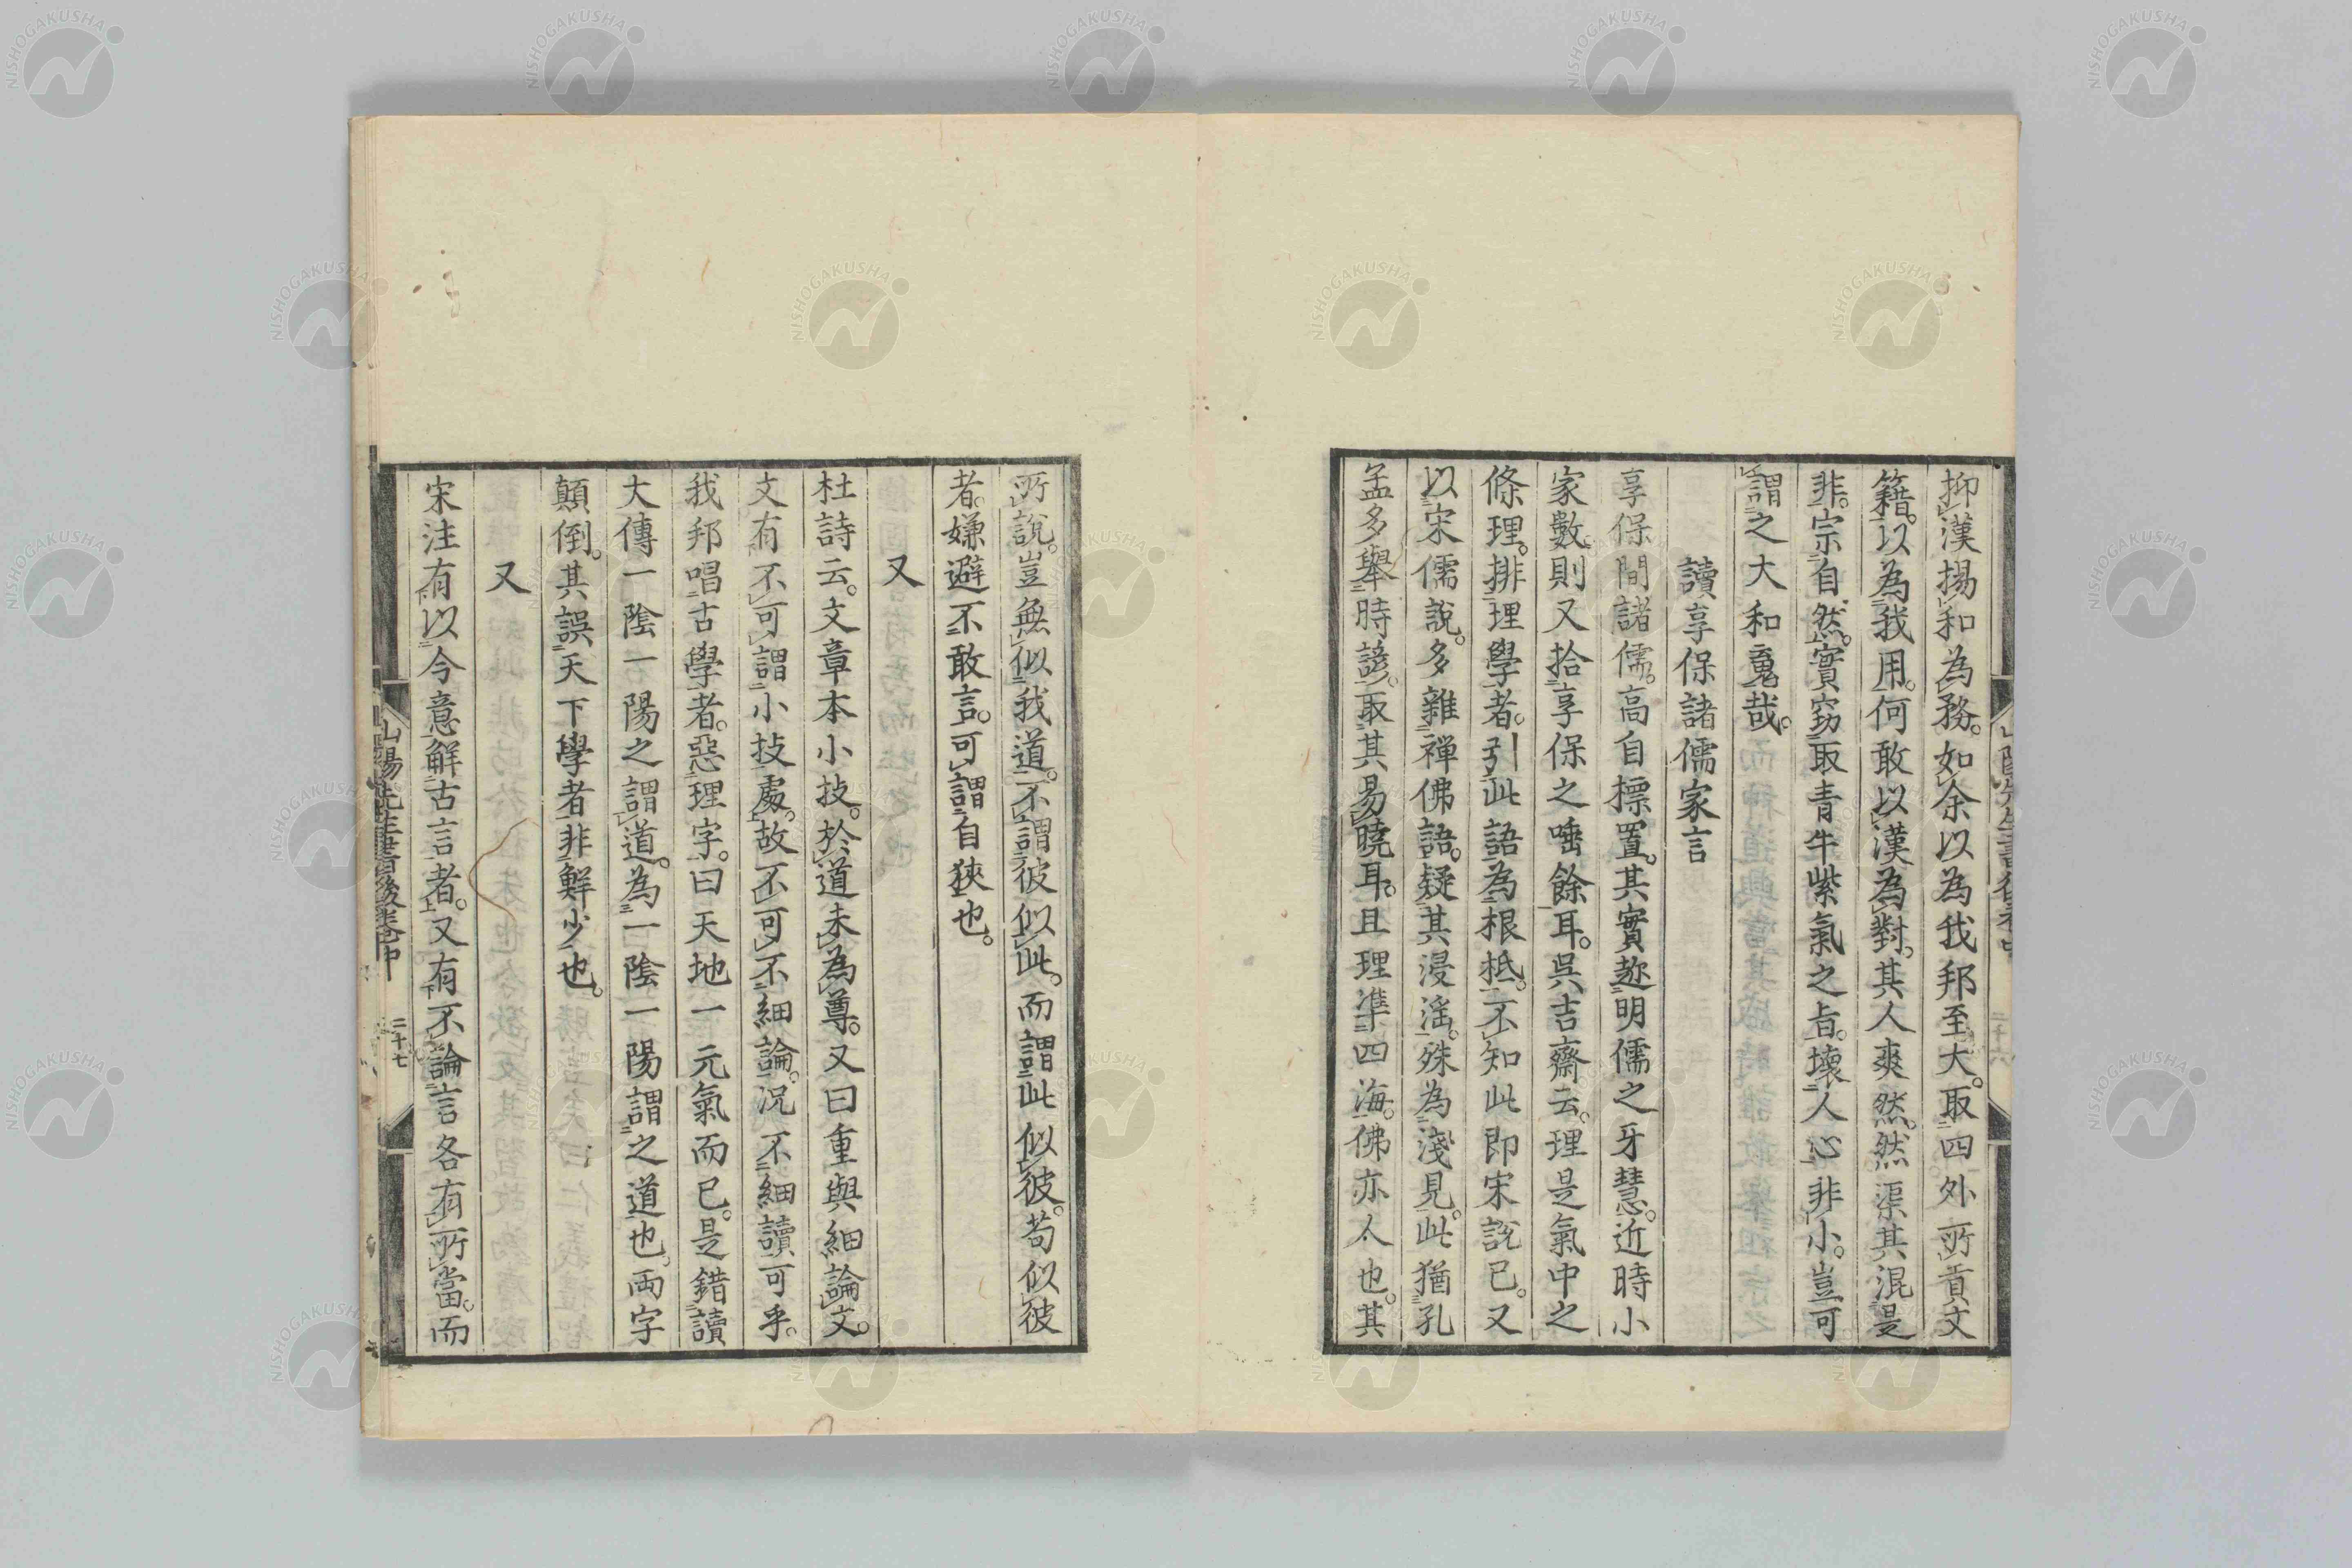 抑漢揚和為務。如余以為我邦至大。取四外所貢文
籍。以為我用。何敢以漢為對。其人爽然。然渠其混是
非。宗自然。實竊取青牛紫氣之旨。壞人心非小。豈可
謂之大和魂哉。
讀享保諸儒家言
享保間諸儒。高自標置。其實迹明儒之牙慧。近時小
家數則又拾享保之唾餘耳。吳吉齋云。理是氣中之
條理。排理學者。引此語為根柢。不知此即宋說已。又
以宋儒說。多雜禪佛語。疑其浸淫。殊為淺見。此猶孔
孟多舉時諺。取其易曉耳。且理準四海。佛亦人也。其
所說。豈無似我道。不謂彼似此。而謂此似彼。苟似彼
者。嫌避不敢言。可謂自狹也。
又
杜詩云。文章本小技。於道未為尊。又曰重與細論文。
文有不可謂小技處。故不可不細論。況不細讀可乎。
我邦唱古學者。惡理字。曰天地一元氣而已。是錯讀
大傳一陰一陽之謂道。為一陰一陽謂之道也。兩字
顛倒。其誤天下學者非鮮少也。
又
宋注有以今意解古言者。又有不論言各有所當。而
山陽先生書後卷中
二十七
NISHOGAKUSHA